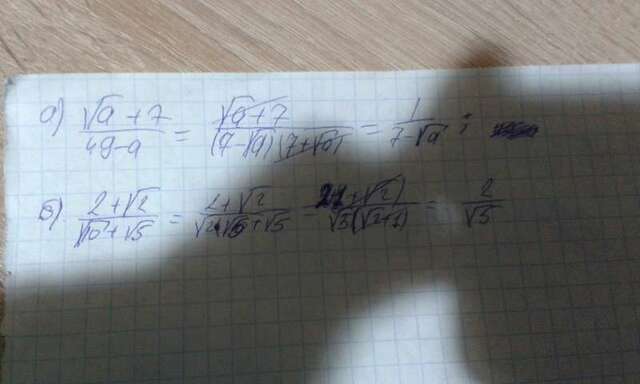 а) (√a + 7)/(49 - a) = (√a + 7)/((7 - √a)(7 + √a)) = 1/(7 - √a) ;
б) (2 + √2)/(√10 + √5) = (2 + √2)/(√2·√5 + √5) = 2(1 + √2)/(√5(√2 + 1)) = 2/√5